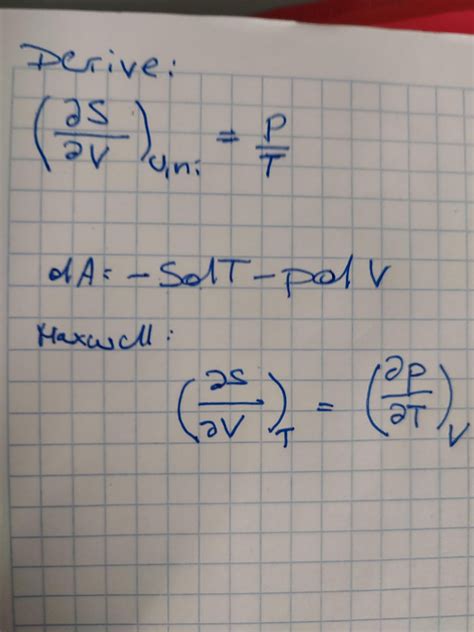 Derive:
(∂S/∂V)U,ni = P/T
dA = -SdT - pdV
Maxwell:
(∂S/∂V)T = (∂P/∂T)V